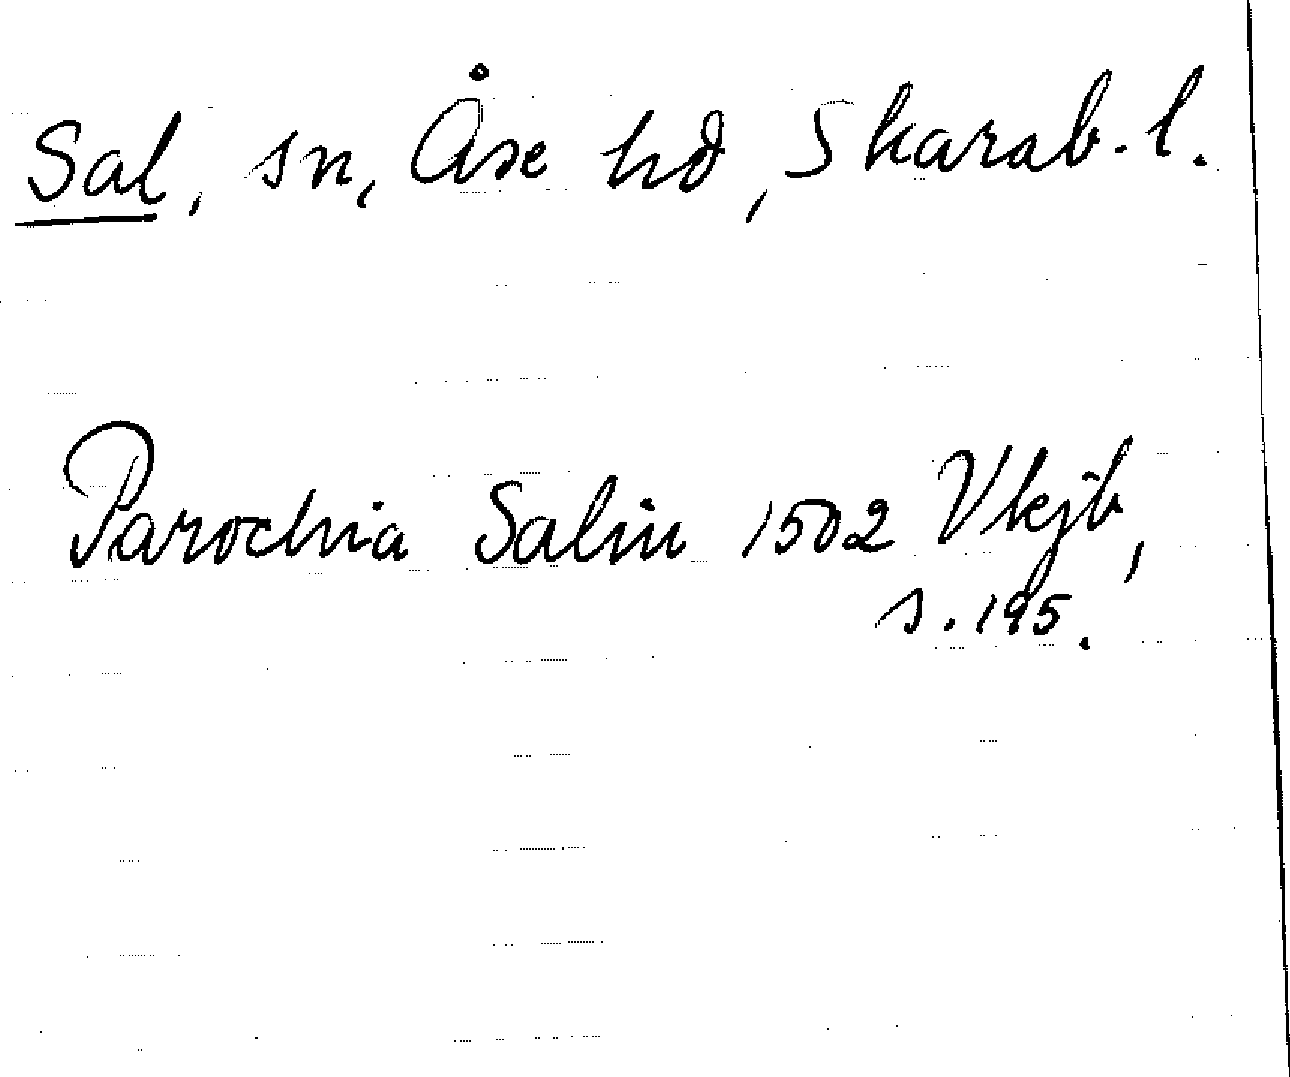 Sal, sn, Åse hd, Skarab. l.
Parochia Salm 1502 Vkjb,
s. 195.